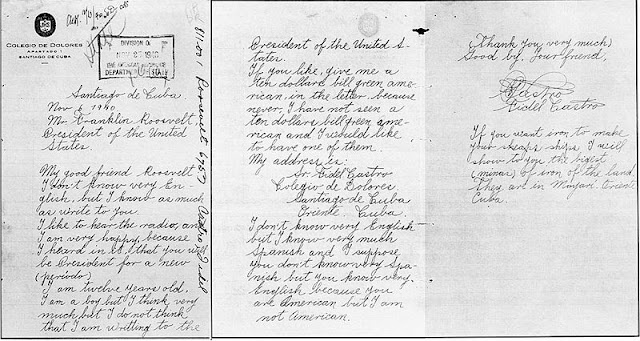 COLEGIO DE DOLORES
APARTADO 1
SANTIAGO DE CUBA
DIVISION OF
NOV 27 1940
DEPARTMENT OF STATE
811.001 Roosevelt, F.D.
Santiago de Cuba
Nov 6 1940
Mr. Franklin Roosvelt,
President of the United
States.
My good friend Roosvelt
I don't know very En-
glish, but I know as much
as write to you.
I like to hear the radio, and
I am very happy, because
I heard in it, that you will
be President for a new
(periodo)
I am twelve years old.
I am a boy but I think very
much but I do not think
that I am writting to the
President of the United S-
tates.
If you like, give me a
ten dollars bill green ame-
rican, in the letter, because
never, I have not seen a
ten dollars bill green ame-
rican and I would like
to have one of them.
My address is:
Sr. Fidel Castro
Colegio de Dolores
Santiago de Cuba
Oriente. Cuba.
I don't know very English
but I know very much
Spanish and I suppose
you don't know very Spa-
nish but you know very
English because you
are American but I am
not American.
(Thank you very much)
Good by. Your friend,
Fidel Castro
If you want iron to make
your ships I will
show to you the bigest
(minas) of iron of the land.
They are in Mayarí. Oriente
Cuba.